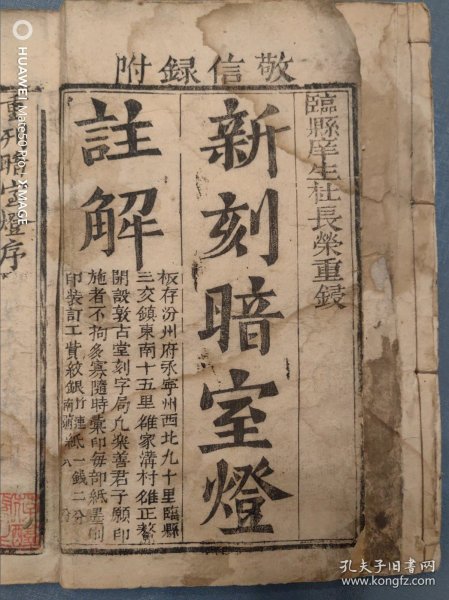 敬信録附
臨縣庠生杜長榮重錄
新刻暗室燈
註解
板存汾州府永寧州西北九十里臨縣
三交鎮東南十五里雒家溝村雒正鰲
開設敦古堂刻字局凡樂善君子願印
施者不拘多寡隨時彙印每部紙墨刷
印裝訂工費紋銀竹連紙一錢二分
重刊暗室燈序
HUAWEI Mate50 Pro · XMAGE
孔夫子旧书网
kongfz.com